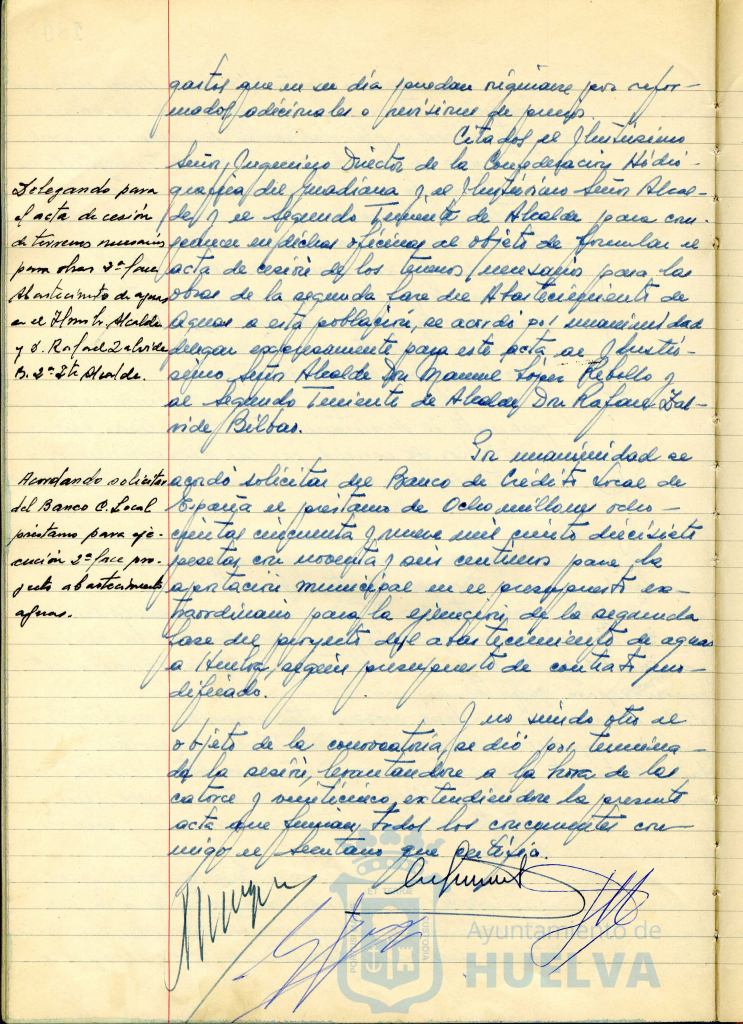 gastos que en su dia puedan originarse por refor-
mados adicionales o revisiones de precios.
Citados el Ilustrisimo
Señor Ingeniero Director de la Confederacion Hidro-
grafica del Guadiana y el Ilustrisimo Señor Alcal-
de y el Segundo Teniente de Alcalde para com-
parecer en dichas oficinas al objeto de formular el
acta de cesión de los terrenos necesarios para las
obras de la segunda fase del Abastecimiento de
Aguas a esta población, se acordó por unanimidad
delegar expresamente para este acta, al Ilustri-
simo Señor Alcalde Don Manuel Lopez Rebollo y
al Segundo Teniente de Alcalde, Don Rafael Zal-
vide Bilbao.
Delegando para
el acta de cesión
de terrenos necesarios
para obras 2ª fase
Abastecimiento de aguas
en el Ilmo Sr. Alcalde
y D. Rafael Zalvide
B. 2º Tte Alcalde.
Por unanimidad se
acordó solicitar del Banco de Crédito Local de
España el préstamo de Ocho millones ocho-
cientas cincuenta y nueve mil ciento diecisiete
pesetas con noventa y seis centimos para la
aportación municipal en el presupuesto ex-
traordinario para la ejecución de la segunda
fase del proyecto del abastecimiento de aguas
a Huelva, según presupuesto de contrato mo-
dificado.
Acordando solicitar
del Banco C. Local
préstamo para eje-
cución 2ª fase pro-
yecto abastecimiento
aguas.
Y no siendo otro el
objeto de la convocatoria, se dió por termina-
da la sesión, levantandose a la hora de las
catorce y veinticinco, extendiendose la presente
acta que firman todos los concurrentes con-
migo el secretario que certifico.
Ayuntamiento de
HUELVA